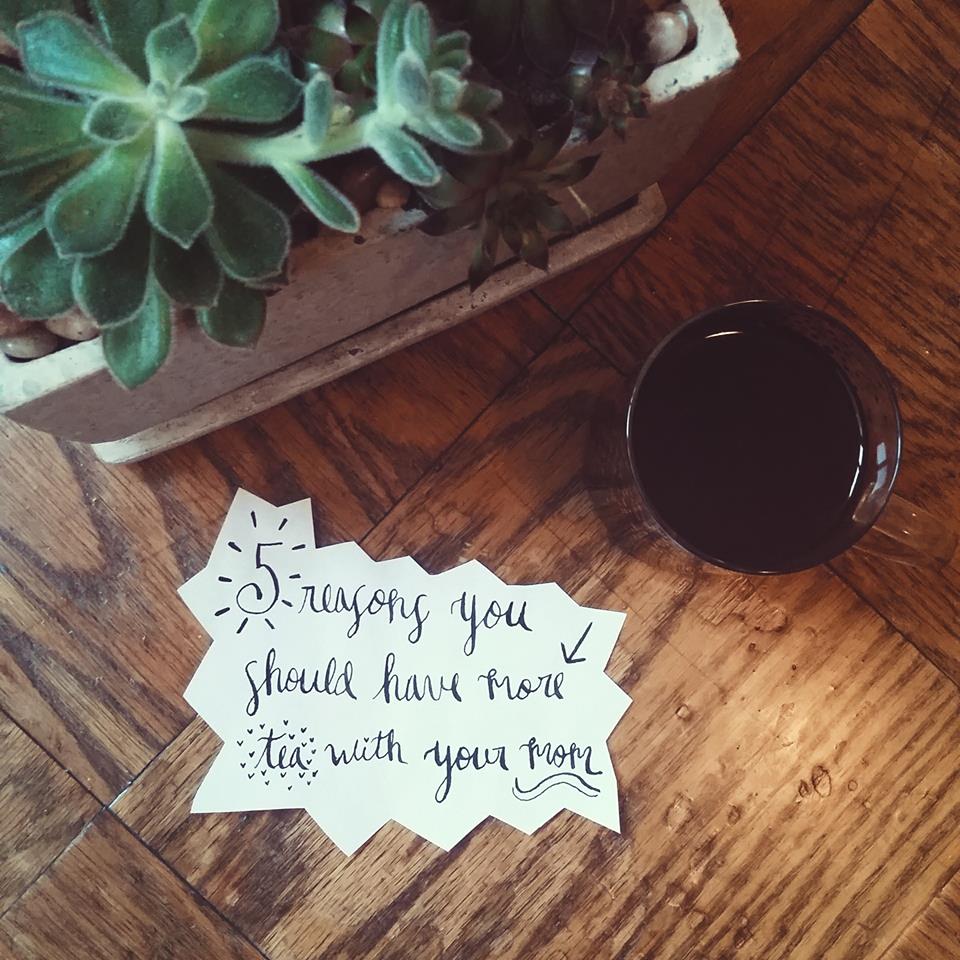 5 reasons you
should have more
tea with your mom